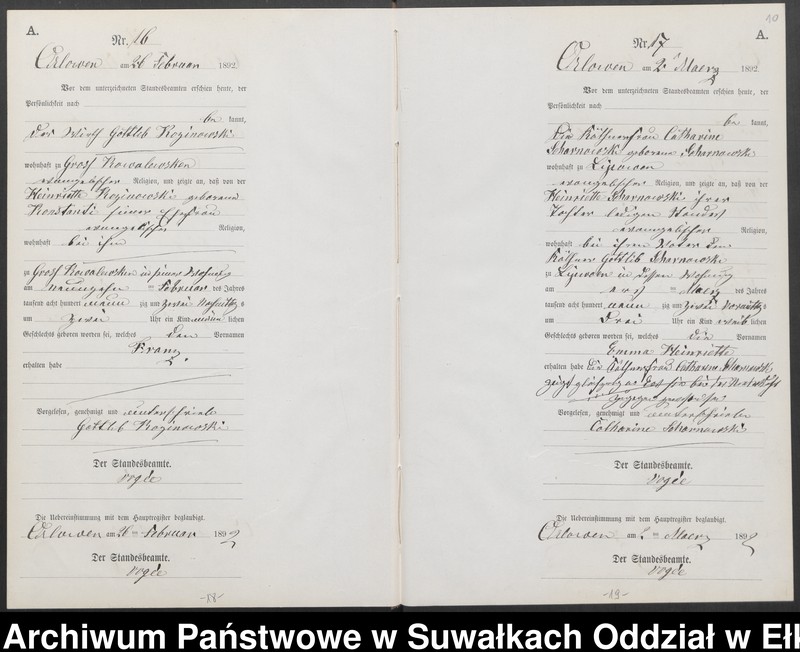 A.
Nr. 16
Orlowen am 26 Februar 1892
Vor dem unterzeichneten Standesbeamten erschien heute, der
Persönlichkeit nach
be kannt,
der Wirth Gottlieb Roginowski
wohnhaft zu Gross Kowalewsken
evangelischer Religion, und zeigte an, daß von der
Heinriette Roginowski geborene
Konstanti seiner Ehefrau
evangelischer Religion,
wohnhaft bei ihm
zu Gross Kowalewsken in seiner Wohnung
am neunzehn ten Februar des Jahres
tausend acht hundert neun zig und zwei Nachmittags
um zwei Uhr ein Kind männ lichen
Geschlechts geboren worden sei, welches den Vornamen
Franz
erhalten habe
Vorgelesen, genehmigt und unterschrieben
Gottlieb Roginowski
Der Standesbeamte.
Vogée
Die Uebereinstimmung mit dem Hauptregister beglaubigt.
Orlowen am 26 ten Februar 1892
Der Standesbeamte.
Vogée
-18-
10
A.
Nr. 17
Orlowen am 2 Maerz 1892
Vor dem unterzeichneten Standesbeamten erschien heute, der
Persönlichkeit nach
be kannt,
die Käthnerfrau Catharine
Scharnowski geborene Scharnowski
wohnhaft zu Lipowen
evangelischer Religion, und zeigte an, daß von der
Heinriette Scharnowski ihrer
Tochter ledigen Standes
evangelischer Religion,
wohnhaft bei ihrem Vater dem
Käthner Gottlieb Scharnowski
zu Lipowen in dessen Wohnung
am ersten Maerz des Jahres
tausend acht hundert neun zig und zwei Vormittags
um drei Uhr ein Kind weib lichen
Geschlechts geboren worden sei, welches die Vornamen
Emma Heinriette
erhalten habe Die Käthnerfrau Catharine Scharnowski
zeigt an das sie bei der Niederkunft
zugegen gewesen sei
Vorgelesen, genehmigt und unterschrieben
Catharine Scharnowski
Der Standesbeamte.
Vogée
Die Uebereinstimmung mit dem Hauptregister beglaubigt.
Orlowen am 2 ten Maerz 1892
Der Standesbeamte.
Vogée
-19-
Archiwum Państwowe w Suwałkach Oddział w Ełk